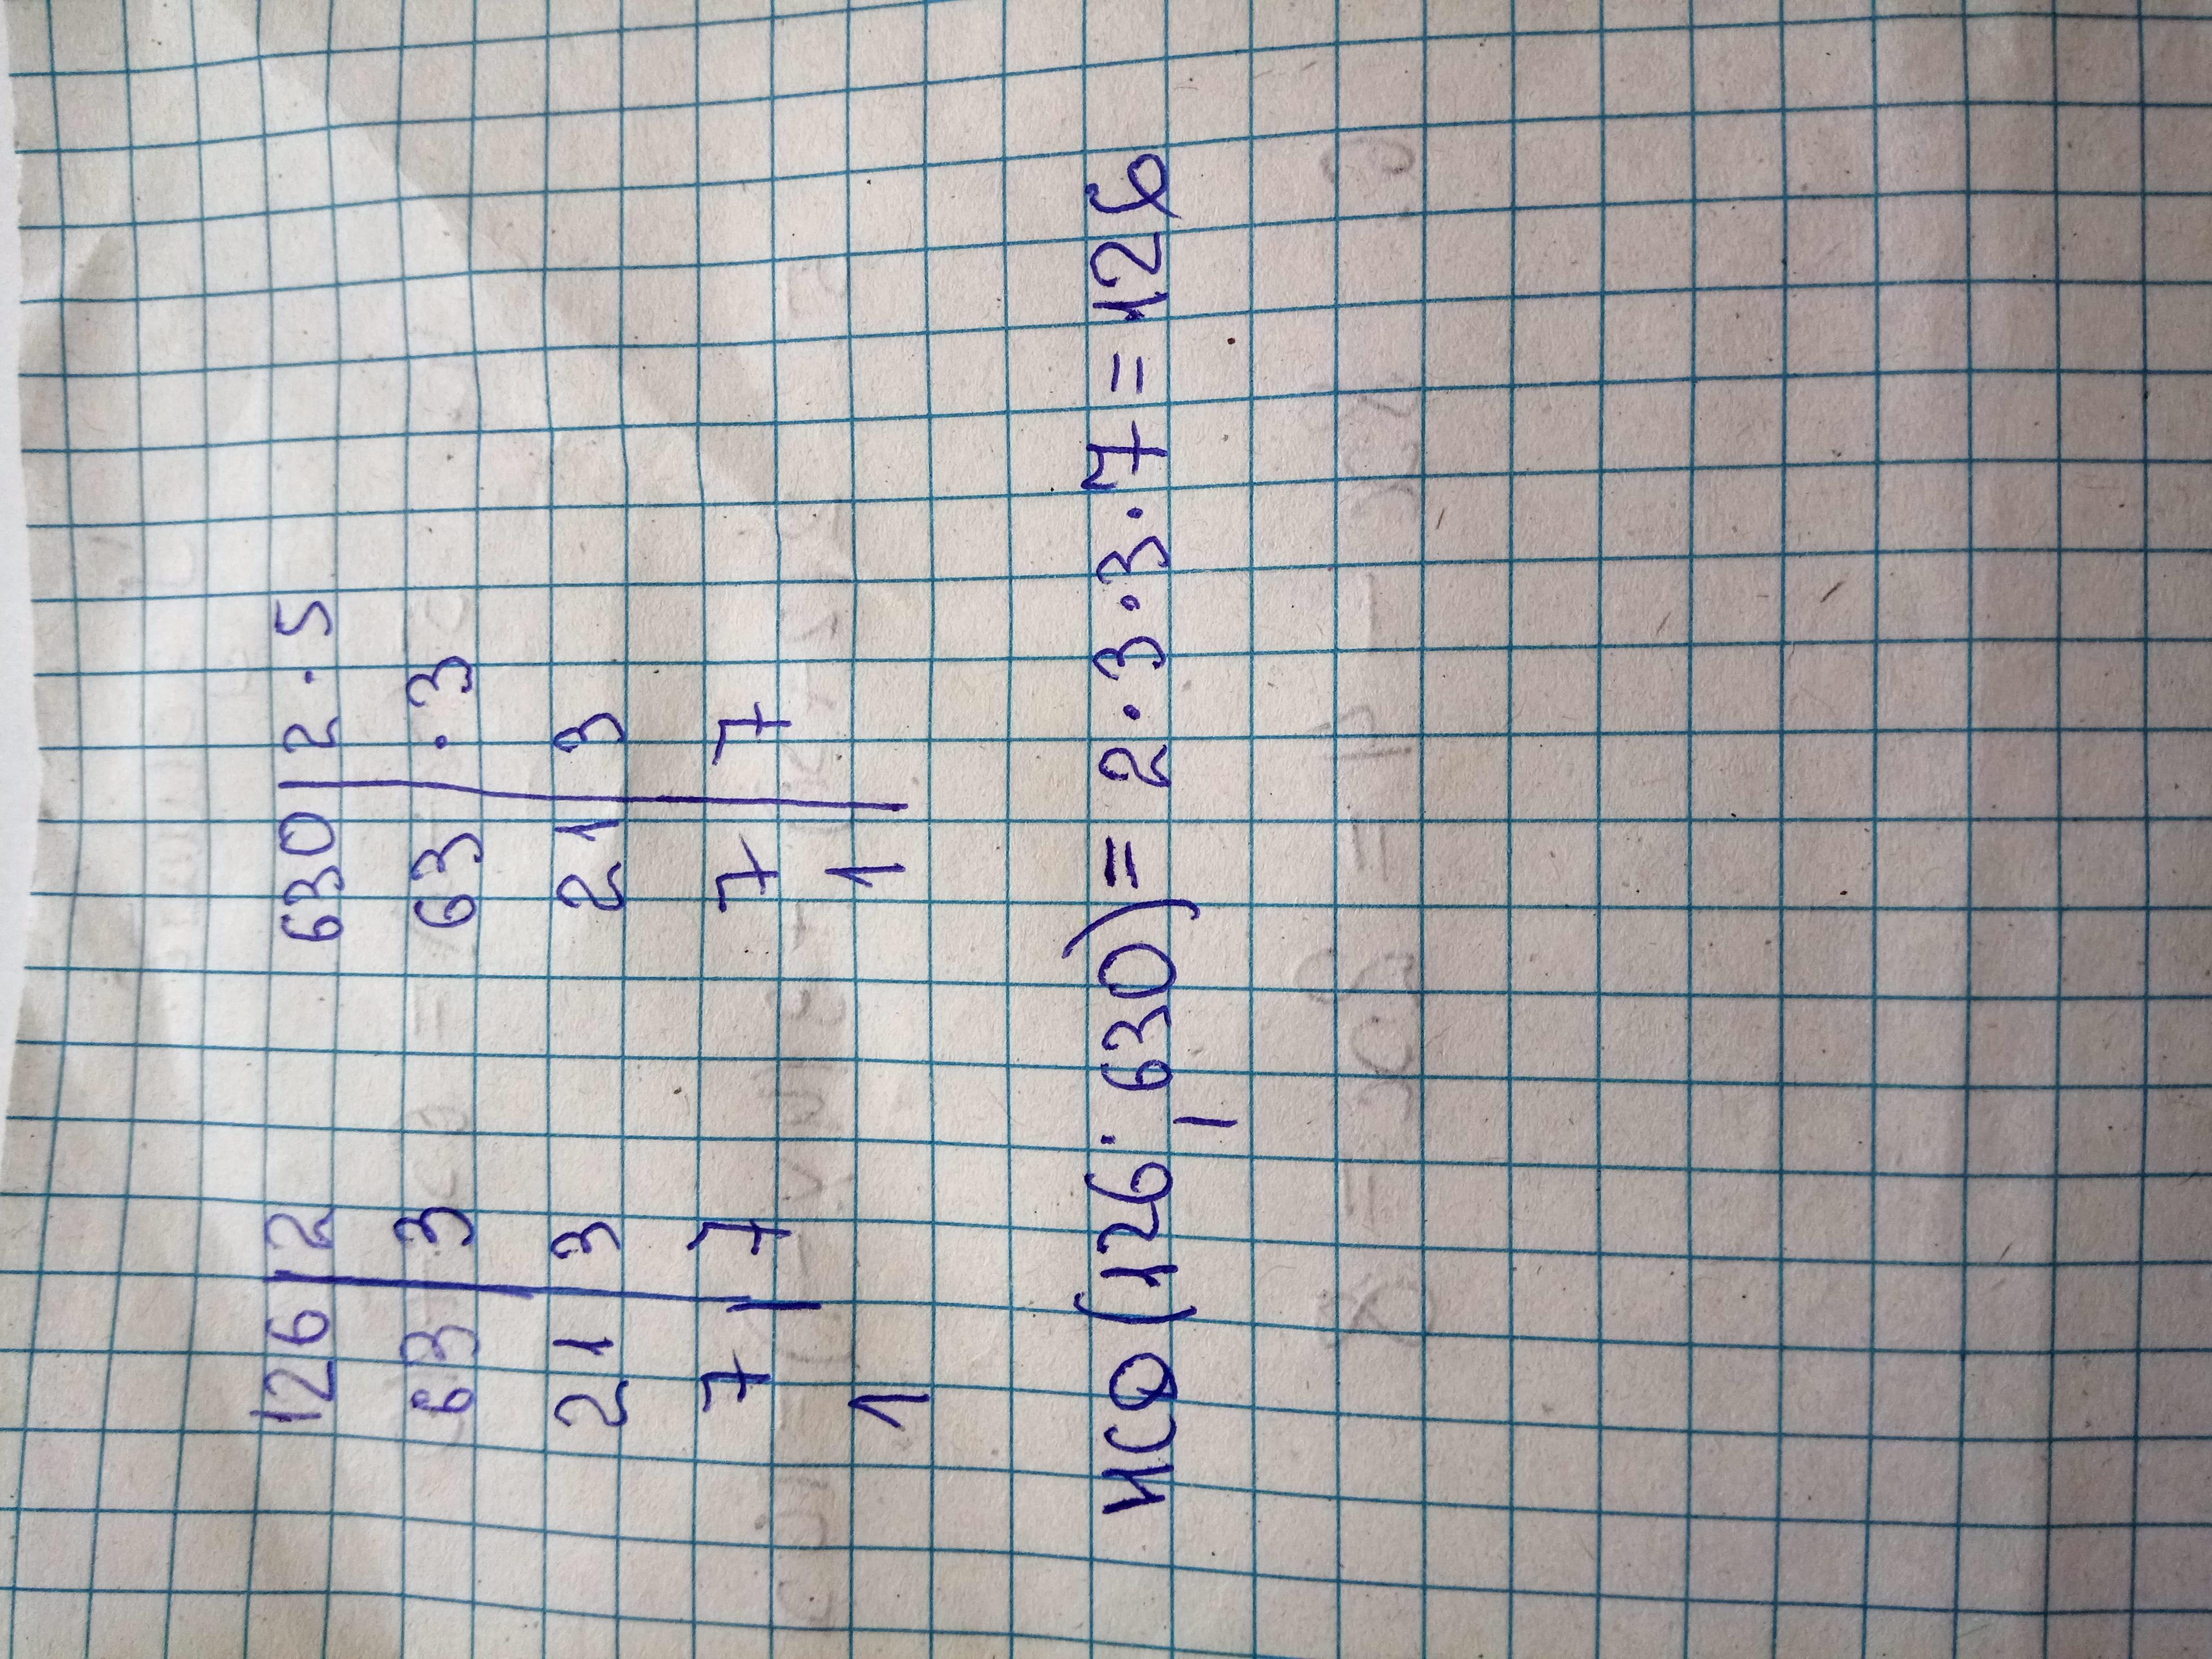 126 | 2 630 | 2 · 5
63 | 3 63 | · 3
21 | 3 21 | 3
7 | 7 7 | 7
1 1 |
НСД (126; 630) = 2 · 3 · 3 · 7 = 126